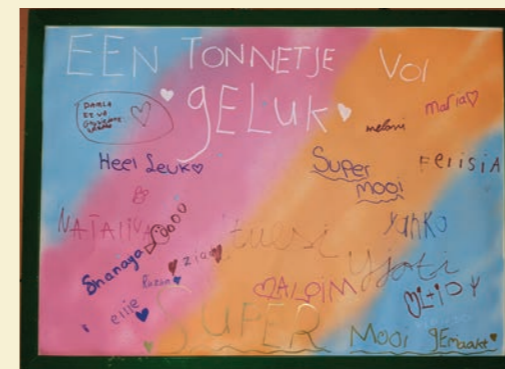 EEN TONNETJE VOl
gELuk
maria
melani
Heel Leuk
Super
Mooi
Ferisia
NATALIYA
Sooo
XANKO
Shanaya
ziao
Yjoti
Razan
ALPIM
ellie
SUPER Mooi gEmaakt